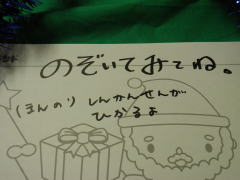 のぞいてみてね。
(まんの)しんかんせんが
ひかるよ